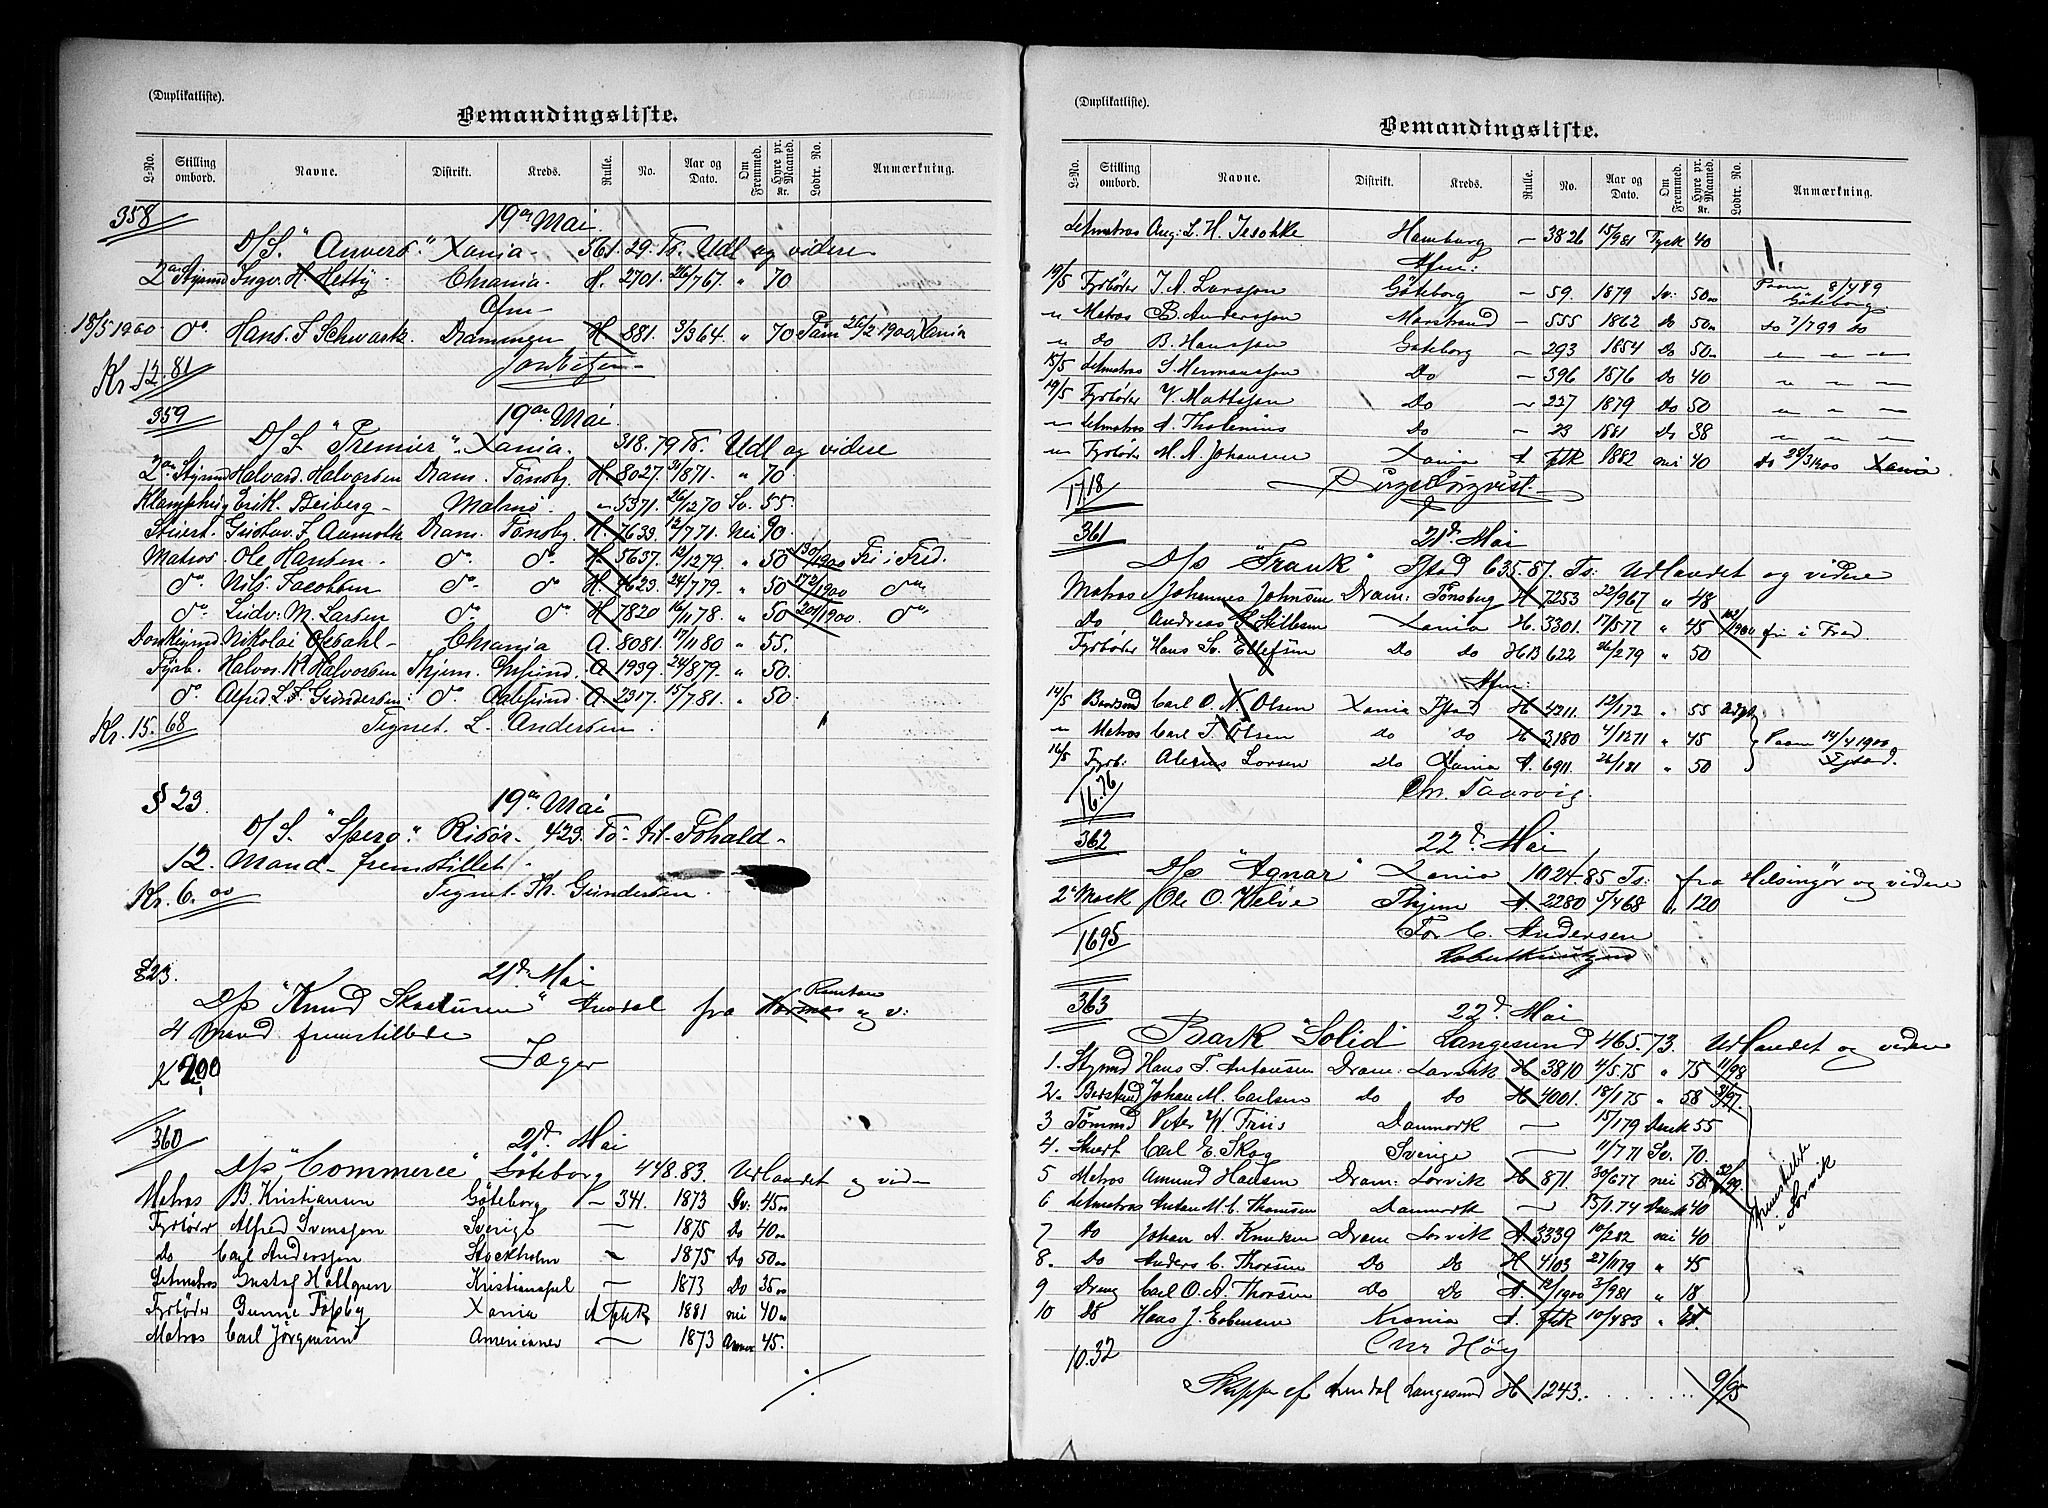 (Duplikatliste).
Bemandingsliste.
L-No. Stilling ombord. Navne. Distrikt. Kreds. Rulle. No. Aar og Dato. Om Fremmed. Hyre pr. Maaned. Kr. Lodtr. No. Anmærkning.
358 19de Mai.
D/S. "Anvers." Xania. 561.29. Ts. Udl og videre
2den Styrmd Ingv. H. Hetty. Chrania. H. 2701. 26/767. " 70
Afm
18/5 1900 do. Hans. F. Schwartz. Drammen H. 881. 3/364. " 70 Paam 26/2 1900 Xania
Kr. 12.81
359 19de Mai.
D/S. "Premier". Xania. 318.79 Ts. Udl og videre
2den Styrmd Halvard. Halvorsen Dram. Tønsbg. H. 8027. 31/871. " 70.
Erik. Beiberg Malmø. " 5371. 26/1270 Sv. 55.
Stuert. Gustav. F. Aamoth Dram. Tønsbg. H. 7633. 12/771. Nei 90
Matros Ole Hansen. do. do. H. 5637. 13/1279. " 50 130/1900 Fri i Fred.
do. Nils. Jacobsen do. do. H. 4623. 24/779. " 50 172/1900 do.
do. Ludv. M. Larsen do. do. H. 7820 16/1178. " 50 201/1900. do.
Donkymd Nikolai Olsdahl Chrania A. 8081. 17/1180 " 55.
Fyrb. Halvor. K. Halvorsen Thjem. Chrsund. A. 1939. 24/879. " 50.
do. Alfred L. F. Gundersen. do. Aalesund. A. 2317. 15/781. " 50
Kr. 15.68 Tegnet. L. Andersen.
§ 23. 19de Mai
D/S. "Sperg". Risør. 423. Ts. til Fshald
12. Mand fremstillet.
Kr. 6.00 Tegnet. Th. Gundersen.
§ 23. 21d Mai
D/s "Knud Skaaluren" Arendal fra Kormas Ramton og v:
4 Mand fremstillede
K 2.00 Jæger
360 21d Mai
D/s "Commerce" Göteborg 448.83. Udlandet og vid
Matros B. Kristiansen Göteborg — 341. 1873 Sv. 45
Fyrbøder Alfred Svensson Sverige — 1875 Do 40
Do Carl Andersson Stockholm — 1875 Do 50
Letmatros Gustaf Hallgren Kristianopel — 1873 Do 35
Fyrbøder Gunne Topsby Xania A Ftk 1881 nei 40
Matros Carl Jørgensen Americaner — 1873 Amer 45.
./.
(Duplikatliste).
Bemandingsliste.
L-No. Stilling ombord. Navne. Distrikt. Kreds. Rulle. No. Aar og Dato. Om Fremmed. Hyre pr. Maaned. Kr. Lodtr. No. Anmærkning.
Letmatros Aug: L. H. Jeschke Hamburg — 3826 15/981 Tysk 40
Afm:
19/5 Fyrbøder J. A. Larsson Göteborg — 59. 1879 Sv: 50 Paam 8/489 Göteborg
" Matros B. Andersson Marstrand — 555 1862 Do 50 do 7/799 do
" Do B. Hansson Göteborg — 293 1854 Do 50 " " "
18/5 Letmatros S. Hermansson Do — 396 1876 Do 40 " " "
19/5 Fyrbøder V. Mattsson Do — 227 1879 Do 50 " " "
" Letmatros A. Tholenius Do — 23 1881 Do 38 " " "
" Fyrbøder M. A. Johansen Xania A ftk 1882 nei 40 Do 28/3 1900 Xania.
17.18 Birger Borgvist
361 21d Mai
D/s "Frank" Fstad 635.87. Ts: Udlandet og videre
Matros Johannes Johnsen Dram: Tønsberg H 7253 22/967 " 48
Do Andreas P. Hilbsen Xania H. 3301. 17/577 " 45 102/1900 fri i Fred.
Fyrbøder Hans Sv. Ellefsen Do Do HB 622 26/279 " 50
Afm:
14/5 Baadsmd Carl O. N. Olsen Xania Fstad H 4211. 12/172 " 55 Udgt
" Matros Carl T. Olsen Do Do H 3180 4/1271 " 45 Paam 14/4 1900
16/5 Fyrb: Alexius Larsen Do Xania A. 6911. 26/181 " 50 Fstad.
16.76 Chr. Taarvig.
362 22d Mai
D/s "Agnar" Xania 1024.85 Ts: fra Helsingør og videre
2d Mask Ole O. Helvie Thjem A. 2280 5/468 " 120
1695 For C. Andersen
Robert Knudtzon
363 22d Mai
Bark "Solid" Langesund 465.73. Udlandet og videre
1. Styrmd Hans T. Antonsen Dram: Larvik H 3810 4/5.75 " 75 11/98
2. Bestmd Johan M. Carlsen Do Do H 4001. 18/175 " 58 31/97.
3 Tømmd Peter W. Friis Danmark — 15/179 Dansk 55
4. Stuert Carl E. Skog Sverige — 11/771 Sv. 70.
5 Matros Amund Hansen Dram: Larvik H 871 30/677 nei 58 32/99
6 Letmatros Antan M. C. Thomsen Danmark — 15/1.74 Dansk 40
7 Do Johan A. Knudsen Dram Larvik A 3339 10/282 nei 40
8. Do Anders C. Thorsen Do Do H 4103 27/1179 " 45
9 Dreng Carl O. A. Thorsen Do Do A. 12/1900 3/981 " 18
10 Do Hans J. Esbensen Krania A. ftk 10/483 "
Fremstilte i Larvik
10.32 Chr Høy
Skipper af Arendal Langesund H 1243. . . . . . . . . 9/95